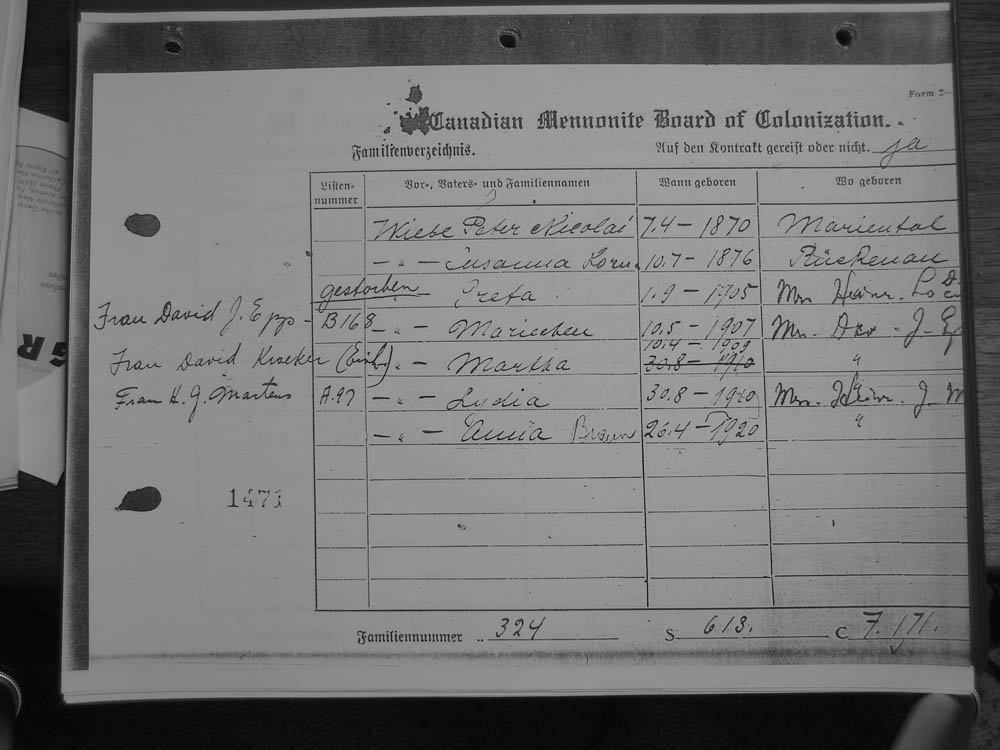 Form 2
Canadian Mennonite Board of Colonization.
Familienverzeichnis. Auf den Kontrakt gereist oder nicht. ja
Listen-nummer Vor-, Vaters- und Familiennamen Wann geboren Wo geboren
Wiebe Peter Nicolai 7.4 - 1870 Mariental
- " - Susanna 10.7 - 1876 Rückenau
gestorben Greta 1.9 - 1905
Frau David J. Epp - B168 - " - Mariechen 10.5 - 1907
10.4 - 1909
Frau David Kroeker - " - Martha 30.8 - 1910 "
Frau H. J. Martens A.97 - " - Lydia 30.8 - 1910
- " - Anna Braun 26.4 - 1920 "
1471
Familiennummer .. 324 S 613. C 7.171.